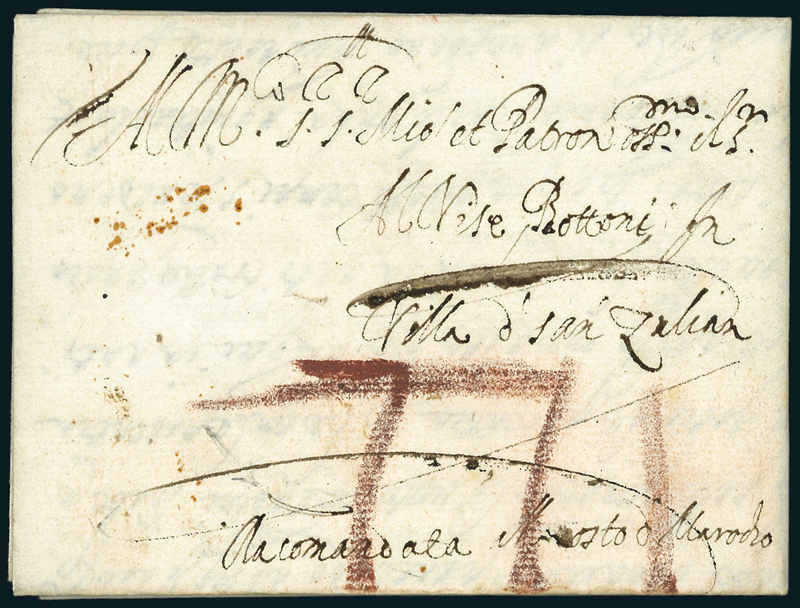 Al M. S. S. Mio et Patron oss.mo il Sr.
AlVise Bottoni In
Villa d' san Zulian
771
Racomandata M osto d Marocho